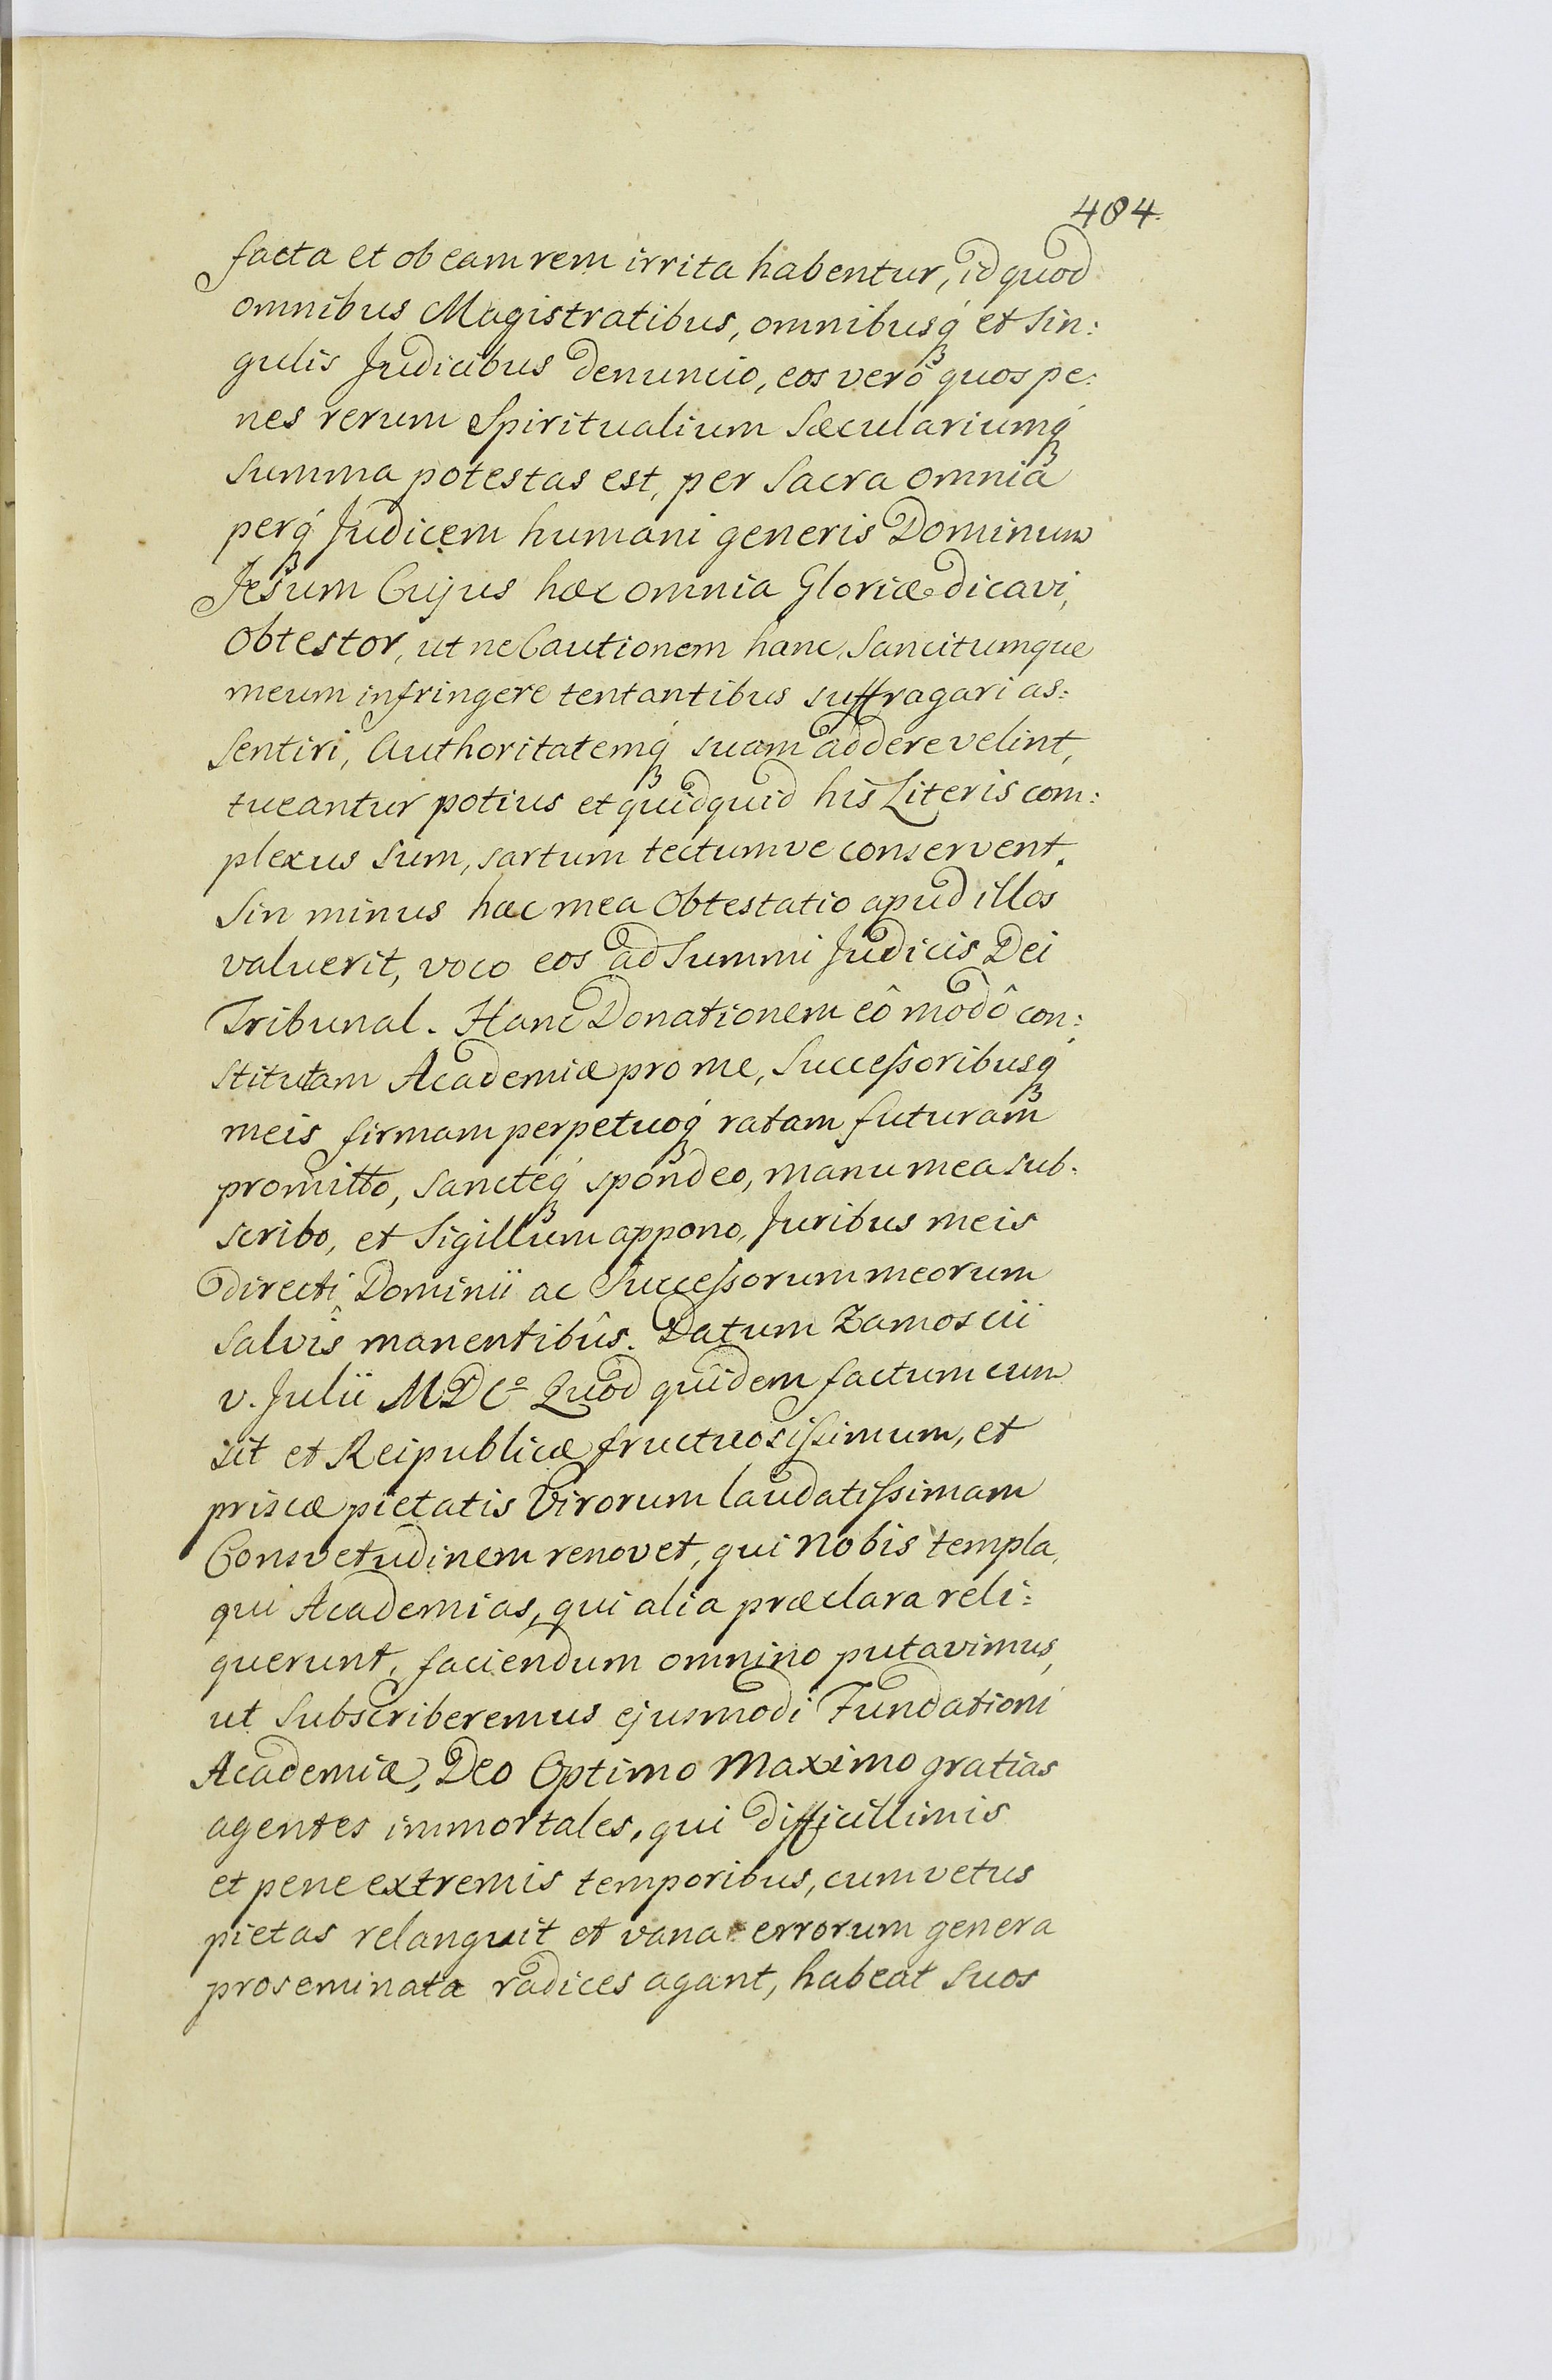 484.
facta et ob eam rem irrita habentur, id quod
omnibus Magistratibus, omnibusq́ et sin:
gulis Judicibus denuncio, eos verô quos pe:
nes rerum Spiritualium Sæculariumq́
summa potestas est, per Sacra omnia
perq́ Judicem humani generis Dominum
Jesum Cujus hæc omnia Gloriæ dicavi,
obtestor, ut ne Cautionem hanc, Sancitumque
meum infringere tentantibus suffragari as:
sentiri, Authoritatemq́ suam addere velint,
tueantur potius et quidquid his Literis com:
plexus sum, sartum tectumve conservent.
Sin minus hæc mea Obtestatio apud illos
valuerit, voco eos ad Summi Judicis Dei
Tribunal. Hanc Donationem eô modô con:
stitutam Academiæ pro me, Successoribusq́
meis firmam perpetuoq́ ratam futuram
promitto, sancteq́ spondeo, manu mea sub:
scribo, et Sigillum appono, Juribus meis
directi Dominii ac Successorum meorum
salvîs manentibûs. Datum Zamoscii
v. Julii MDCo Quod quidem factum cum
sit et Reipublicæ fructuosissimum, et
priscæ pietatis Virorum laudatissimam
Consvetudinem renovet, qui nobis templa,
qui Academias, qui alia præclara reli:
querunt, faciendum omnino putavimus,
ut Subscriberemus ejusmodi Fundationi
Academiæ, Deo Optimo Maximo gratias
agentes immortales, qui difficillimis
et pene extremis temporibus, cum vetus
pietas relanguit et vana errorum genera
proseminata radices agant, habeat suos